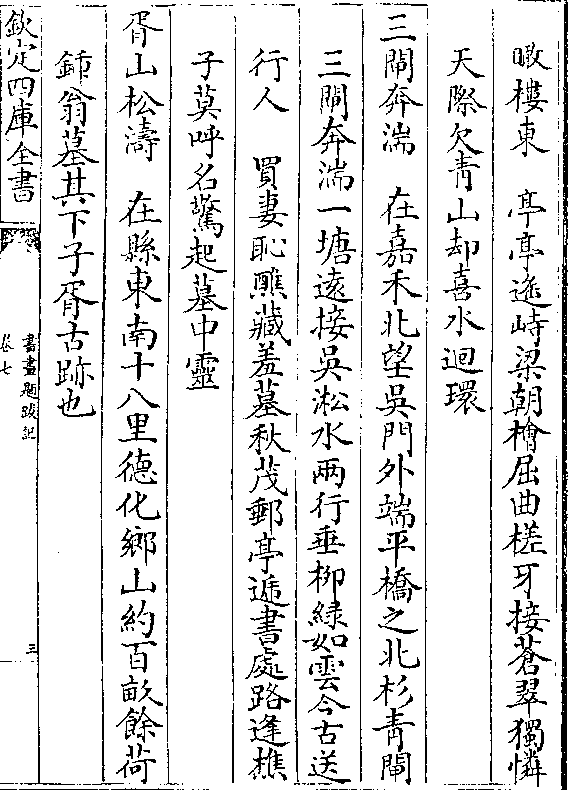 瞰樓東　亭亭遥峙梁朝檜屈曲槎牙接蒼翠獨憐
天際欠青山却喜水迴環
三閘奔湍　在嘉禾北望吳門外端平橋之北杉青閘
三閘奔湍一塘遠接吳淞水兩行垂柳緑如雲今古送
行人　買妻恥醮藏羞墓秋茂郵亭遞書處路逢樵
子莫呼名驚起墓中靈
胥山松濤　在縣東南十八里德化鄉山約百畝餘荷
鍤翁墓其下子胥古跡也
欽定四庫全書
書畫題跋記
卷七
三